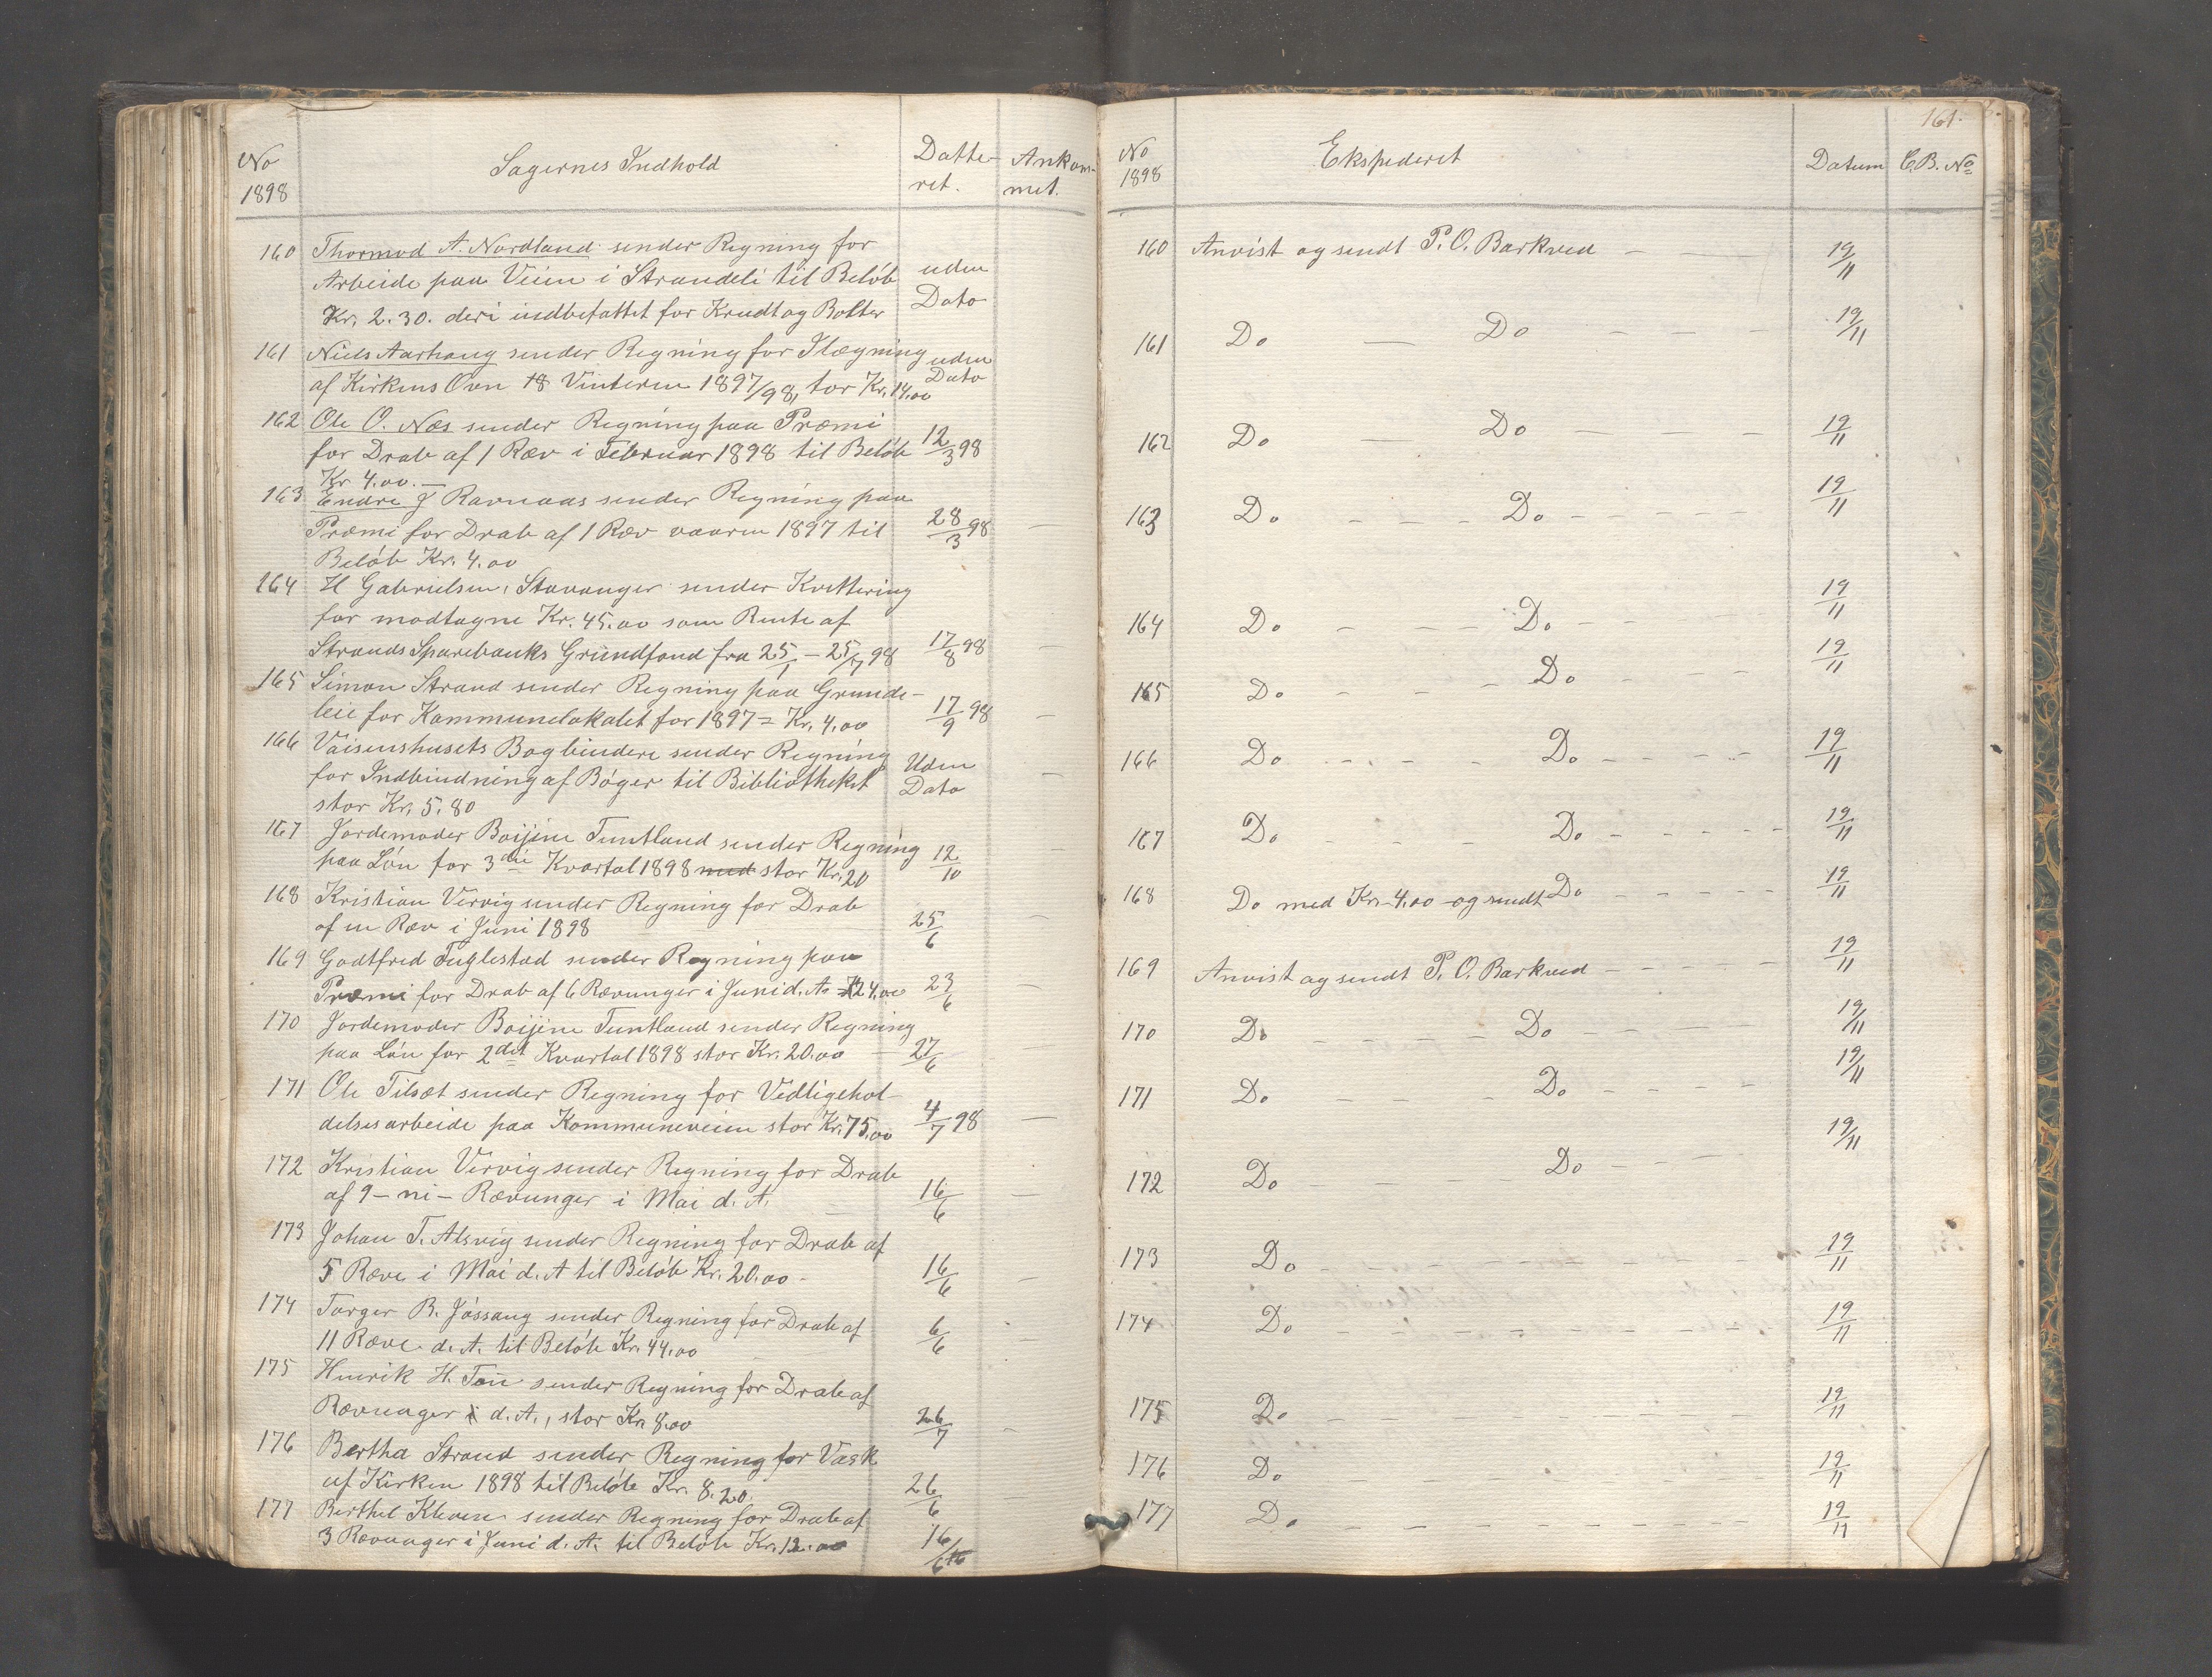 No
1898
Sagernes Indhold
Datte-
ret.
Ankom-
met.
160 Thormod A. Nordland sender Regning for
Arbeide paa Veien i Strandeli til Beløb
Kr. 2.30. deri indbefattet for Krudt og Bolter
uden
Dato
161 Niels Aarhaug sender Regning for Ilægning
af Kirkens Ovn 18 Vinteren 1897/98, stor Kr. 14,00
uden
Dato
162 Ole O. Næs sender Regning paa Præmi
for Drab af 1 Ræv i Februar 1898 til Beløb
Kr 4.00.—
12/3 98
163 Endre J Ravnaas sender Regning paa
Præmi for Drab af 1 Ræv vaaren 1897 til
Beløb Kr. 4.00
28/3 98 —
164 H Gabrielsen, Stavanger sender Kvittering
for modtagne Kr. 45.00 som Rente af
Strands Sparebanks Grundfond fra 25/1 – 25/7 98
17/8 98 —
165 Simon Strand sender Regning paa Grunde-
leie for Kommunelokalet for 1897 = Kr. 4.00
17/9 98 —
166 Vaisenshusets Bogbindere sender Regning
for Indbindning af Bøger til Bibliotheket
stor Kr. 5.80
Uden
Dato —
167 Jordemoder Boijine Tuntland sender Regning
paa Løn for 3die Kvartal 1898 med stor Kr. 20
12/10 —
168 Kristian Vervig sender Regning for Drab
af en Ræv i Juni 1898
25/6 —
169 Godtfred Fuglestad sender Regning paa
Præmi for Drab af 6 Rævunger i Juni d. A. 24,00
23/6 —
170 Jordemoder Boijine Tuntland sender Regning
paa Løn for 2det Kvartal 1898 stor Kr. 20.00 —
27/6 —
171 Ole Tilsæt sender Regning for Vedligehol-
delsesarbeide paa Kommuneveien stor Kr. 75.00
4/7 98 —
172 Kristian Vervig sender Regning for Drab
af 9 – ni – Rævunger i Mai d. A.
16/6 —
173 Johan T. Alsvig sender Regning for Drab af
5 Ræve i Mai d. A til Beløb Kr. 20.00 -
16/6 —
174 Torger B. Jøssang sender Regning for Drab af
11 Ræve d. A. til Beløb Kr. 44.00
6/6
175 Henrik H. Tøn sender Regning for Drab af
Rævunger i d. A., stor Kr. 8.00
26/7 -
176 Bertha Strand sender Regning for Vask
af Kirken 1898 til Beløb Kr. 8.20.
26/6
177 Berthel Kleven sender Regning for Drab af
3 Rævunger i Juni d. A. til Beløb Kr. 12.00
16/6
161.
No
1898
Ekspederet
Datum
C.B. No
160 Anvist og sendt P. O. Barkved — — 19/11
161 Do — Do — — — 19/11
162 Do — Do — — — 19/11
163 Do - - - Do - - - - - 19/11
164 Do - - - Do - - - 19/11
165 Do - - - Do - - 19/11
166 Do - - - Do - - - - 19/11
167 Do - - - Do - - - - - 19/11
168 Do med Kr. 4.00 og sendt Do - - - - - 19/11
169 Anvist og sendt P. O. Barkved - - - - - 19/11
170 Do - - - - Do - - - - 19/11
171 Do - - - Do - - - - 19/11
172 Do - - - - Do - - - 19/11
173 Do - - - - - - - - 19/11
174 Do - - - - - - - - - 19/11
175 Do - - - - - - - - 19/11
176 Do - - - - - - - - 19/11
177 Do - - - - - - - - 19/11